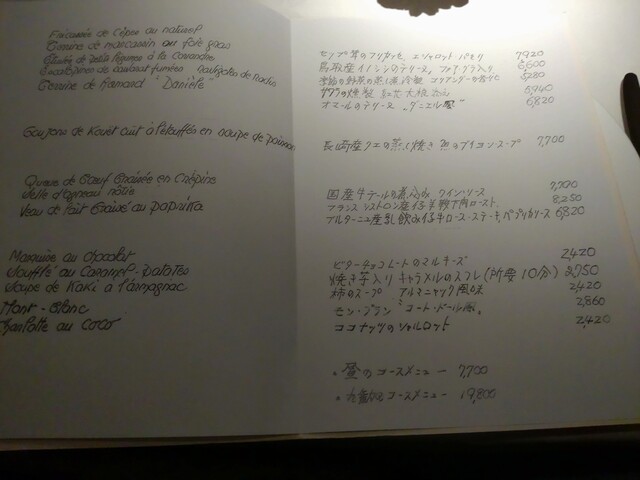 Fricassée de Cèpes au naturel
Terrine de marcassin au foie gras
à la coriandre
fumées
Terrine de Homard "Danièle"
cuit à l'étouffée en soupe de poisson
Queue de Bœuf Braisée en Crépine
Selle d'agneau rôtie
Veau de lait Braisé au paprika
Marquise au chocolat
Soufflé au Caramel. Patates
Soupe de Kaki à l'armagnac
Mont-Blanc
Charlotte au coco
セップ茸のフリカッセ エシャロット パセリ 7,920
鳥取産イノシシのテリーヌ, フォアグラ入り 6,600
季節の野菜の蒸し煮 冷製 コリアンダーの香り 5,280
サワラの燻製 紅芯大根 5,940
オマールのテリーヌ "ダニエル風" 6,820
長崎産クエの蒸し焼き 魚のブイヨンスープ 7,700
国産牛テールの煮込み ワインソース 7,700
フランス シストロン産 仔羊鞍下肉ロースト 8,250
ブルターニュ産乳飲み仔牛ロースステーキ, パプリカソース 6,820
ビターチョコレートのマルキーズ 2,420
焼き芋入り キャラメルのスフレ (所要10分) 2,750
柿のスープ アルマニャック風味 2,420
モン・ブラン "コート・ドール風" 2,860
ココナッツのシャルロット 2,420
• 昼のコースメニュー 7,700
• コースメニュー 19,800